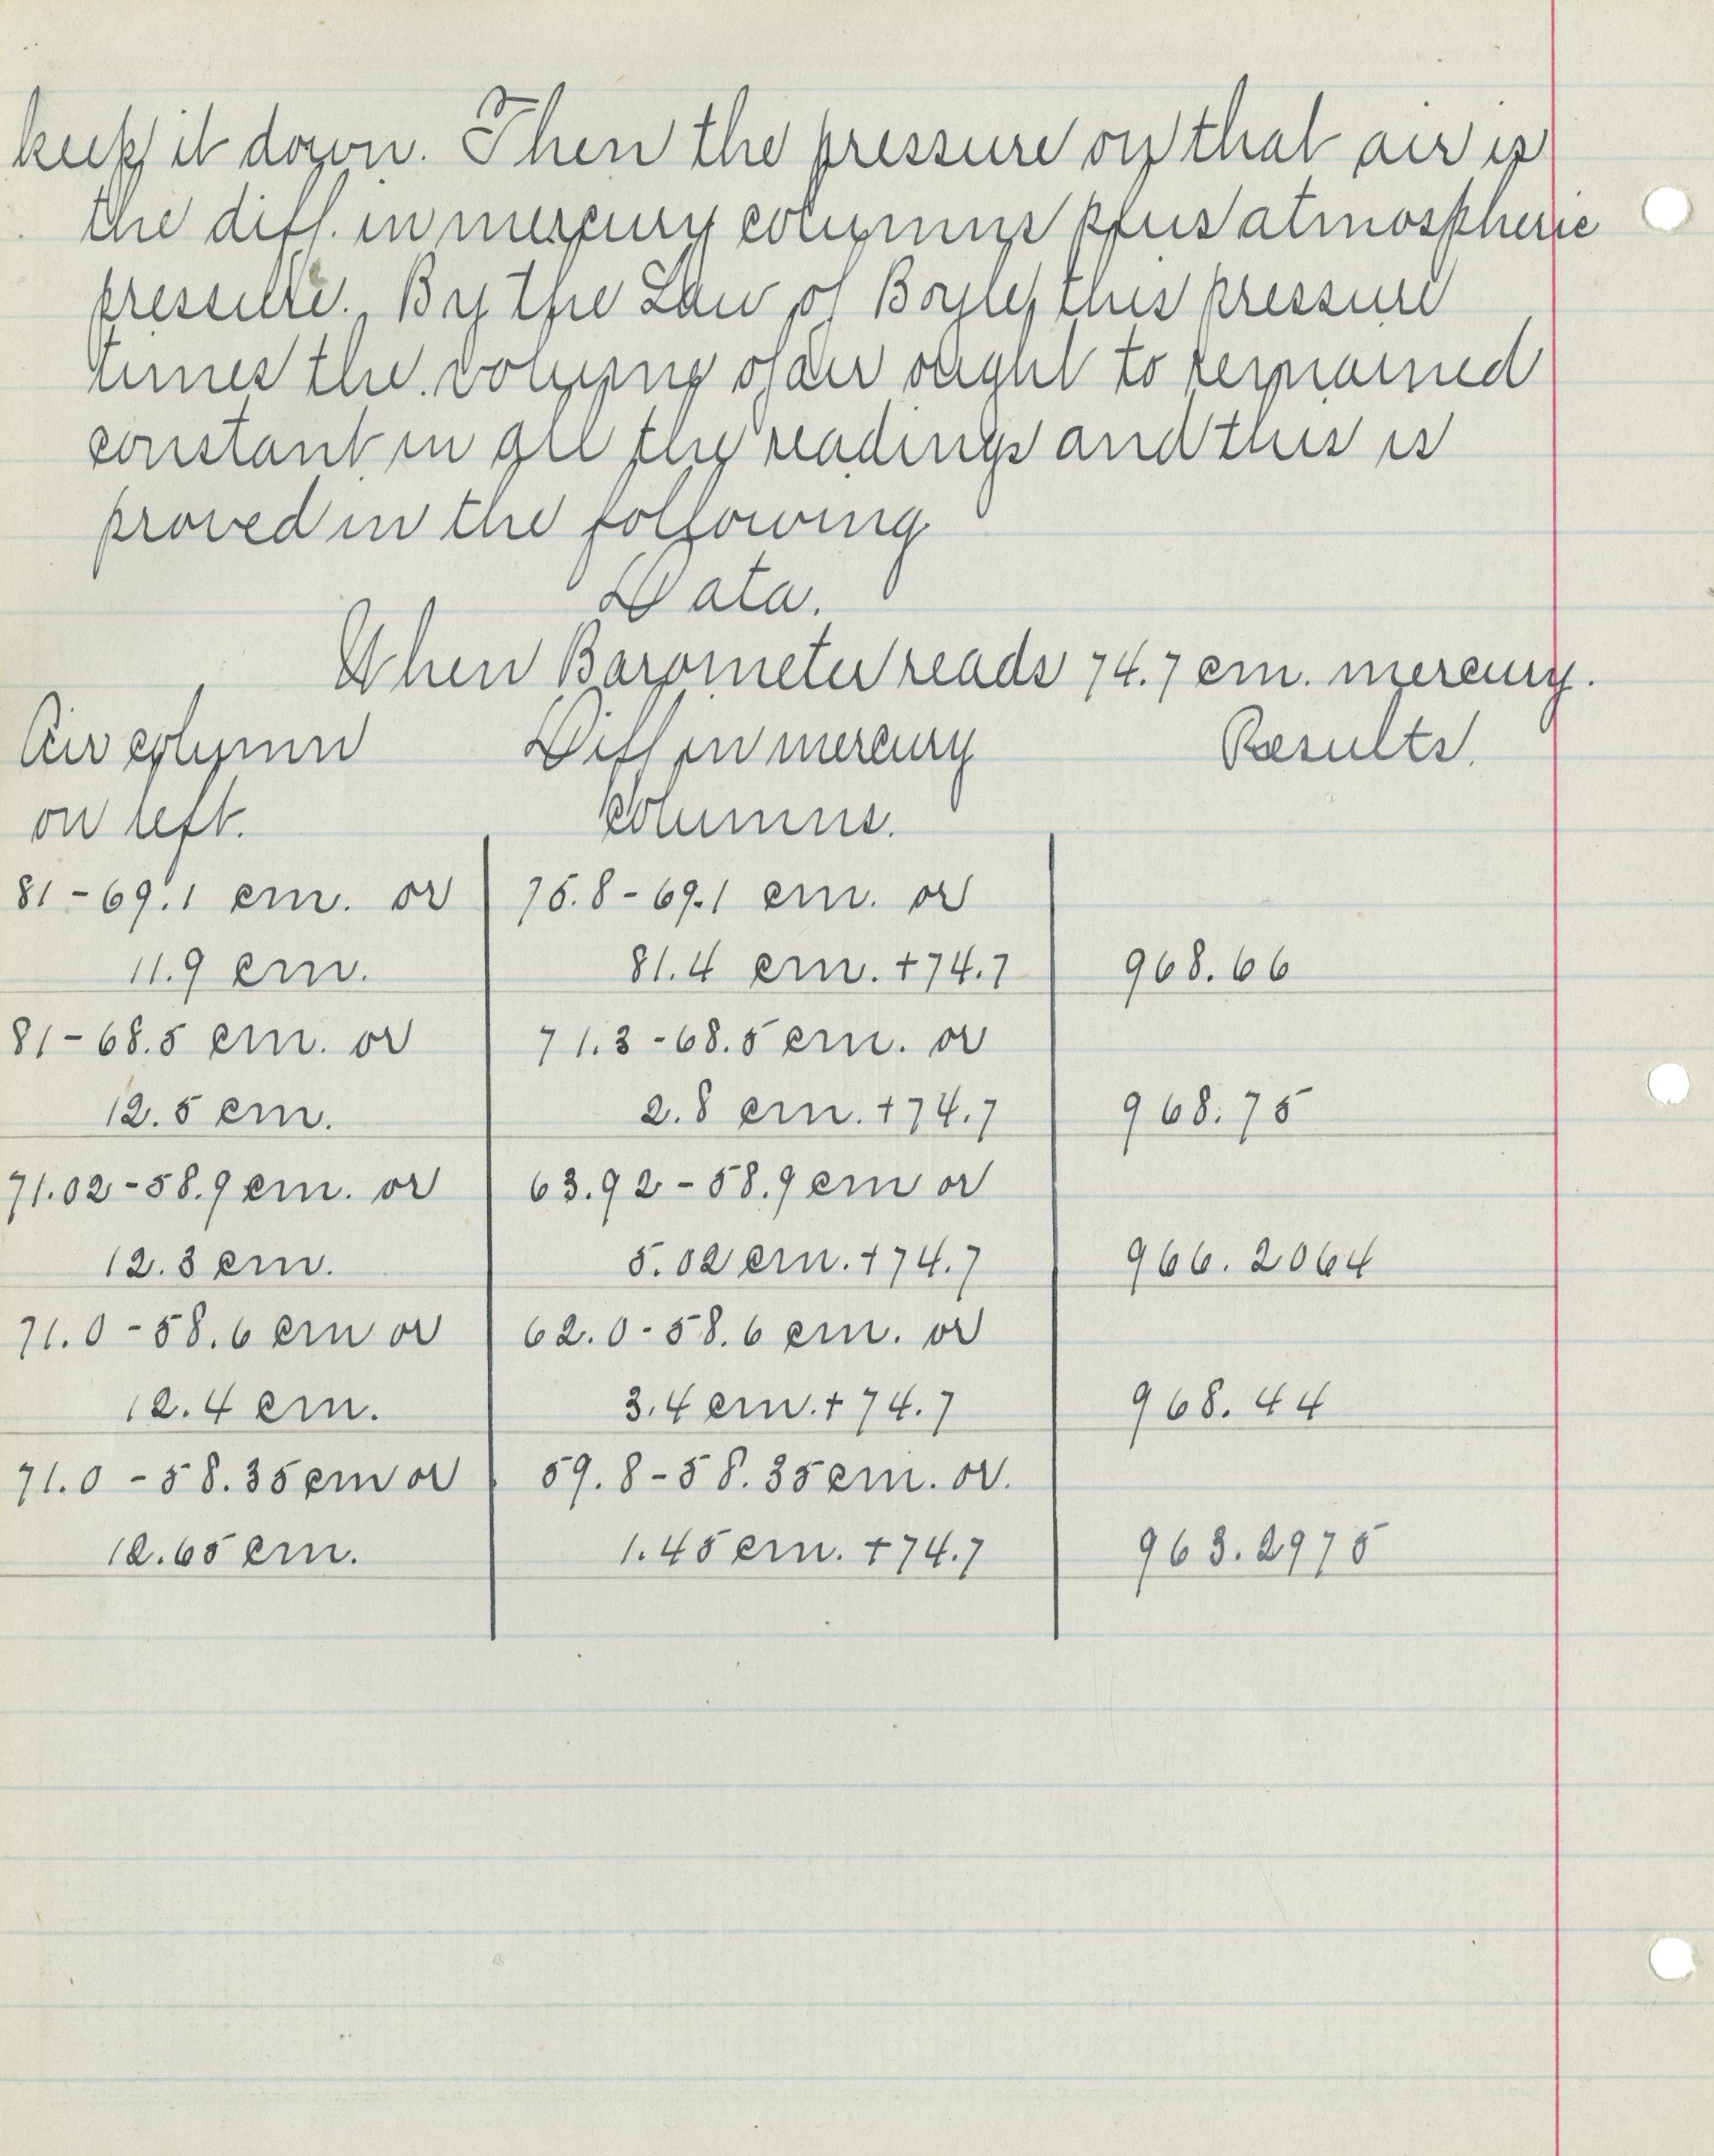 keep it down. Then the pressure on that air is
the diff. in mercury columns plus atmospheric
pressure. By the Law of Boyle, this pressure
times the volume of air ought to remained
constant in all the readings and this is
proved in the following
Data.
When Barometer reads 74.7 cm. mercury.
Air column Diff in mercury Results.
on left. columns.
81-69.1 cm. or 75.8-69.1 cm. or
11.9 cm. 81.4 cm. +74.7 968.66
81-68.5 cm. or 71.3-68.5 cm. or
12.5 cm. 2.8 cm. +74.7 968.75
71.02-58.9 cm. or 63.92-58.9 cm or
12.3 cm. 5.02 cm. +74.7 966.2064
71.0-58.6 cm or 62.0-58.6 cm. or
12.4 cm. 3.4 cm. + 74.7 968.44
71.0-58.35 cm or 59.8-58.35 cm. or.
12.65 cm. 1.45 cm. +74.7 963.2975